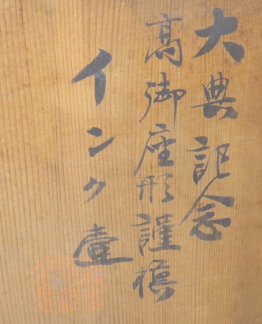 大典記念
高御座形謹模
インク壷